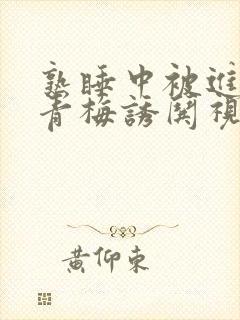 熟睡中被進
青梅誘関視
黄仰東